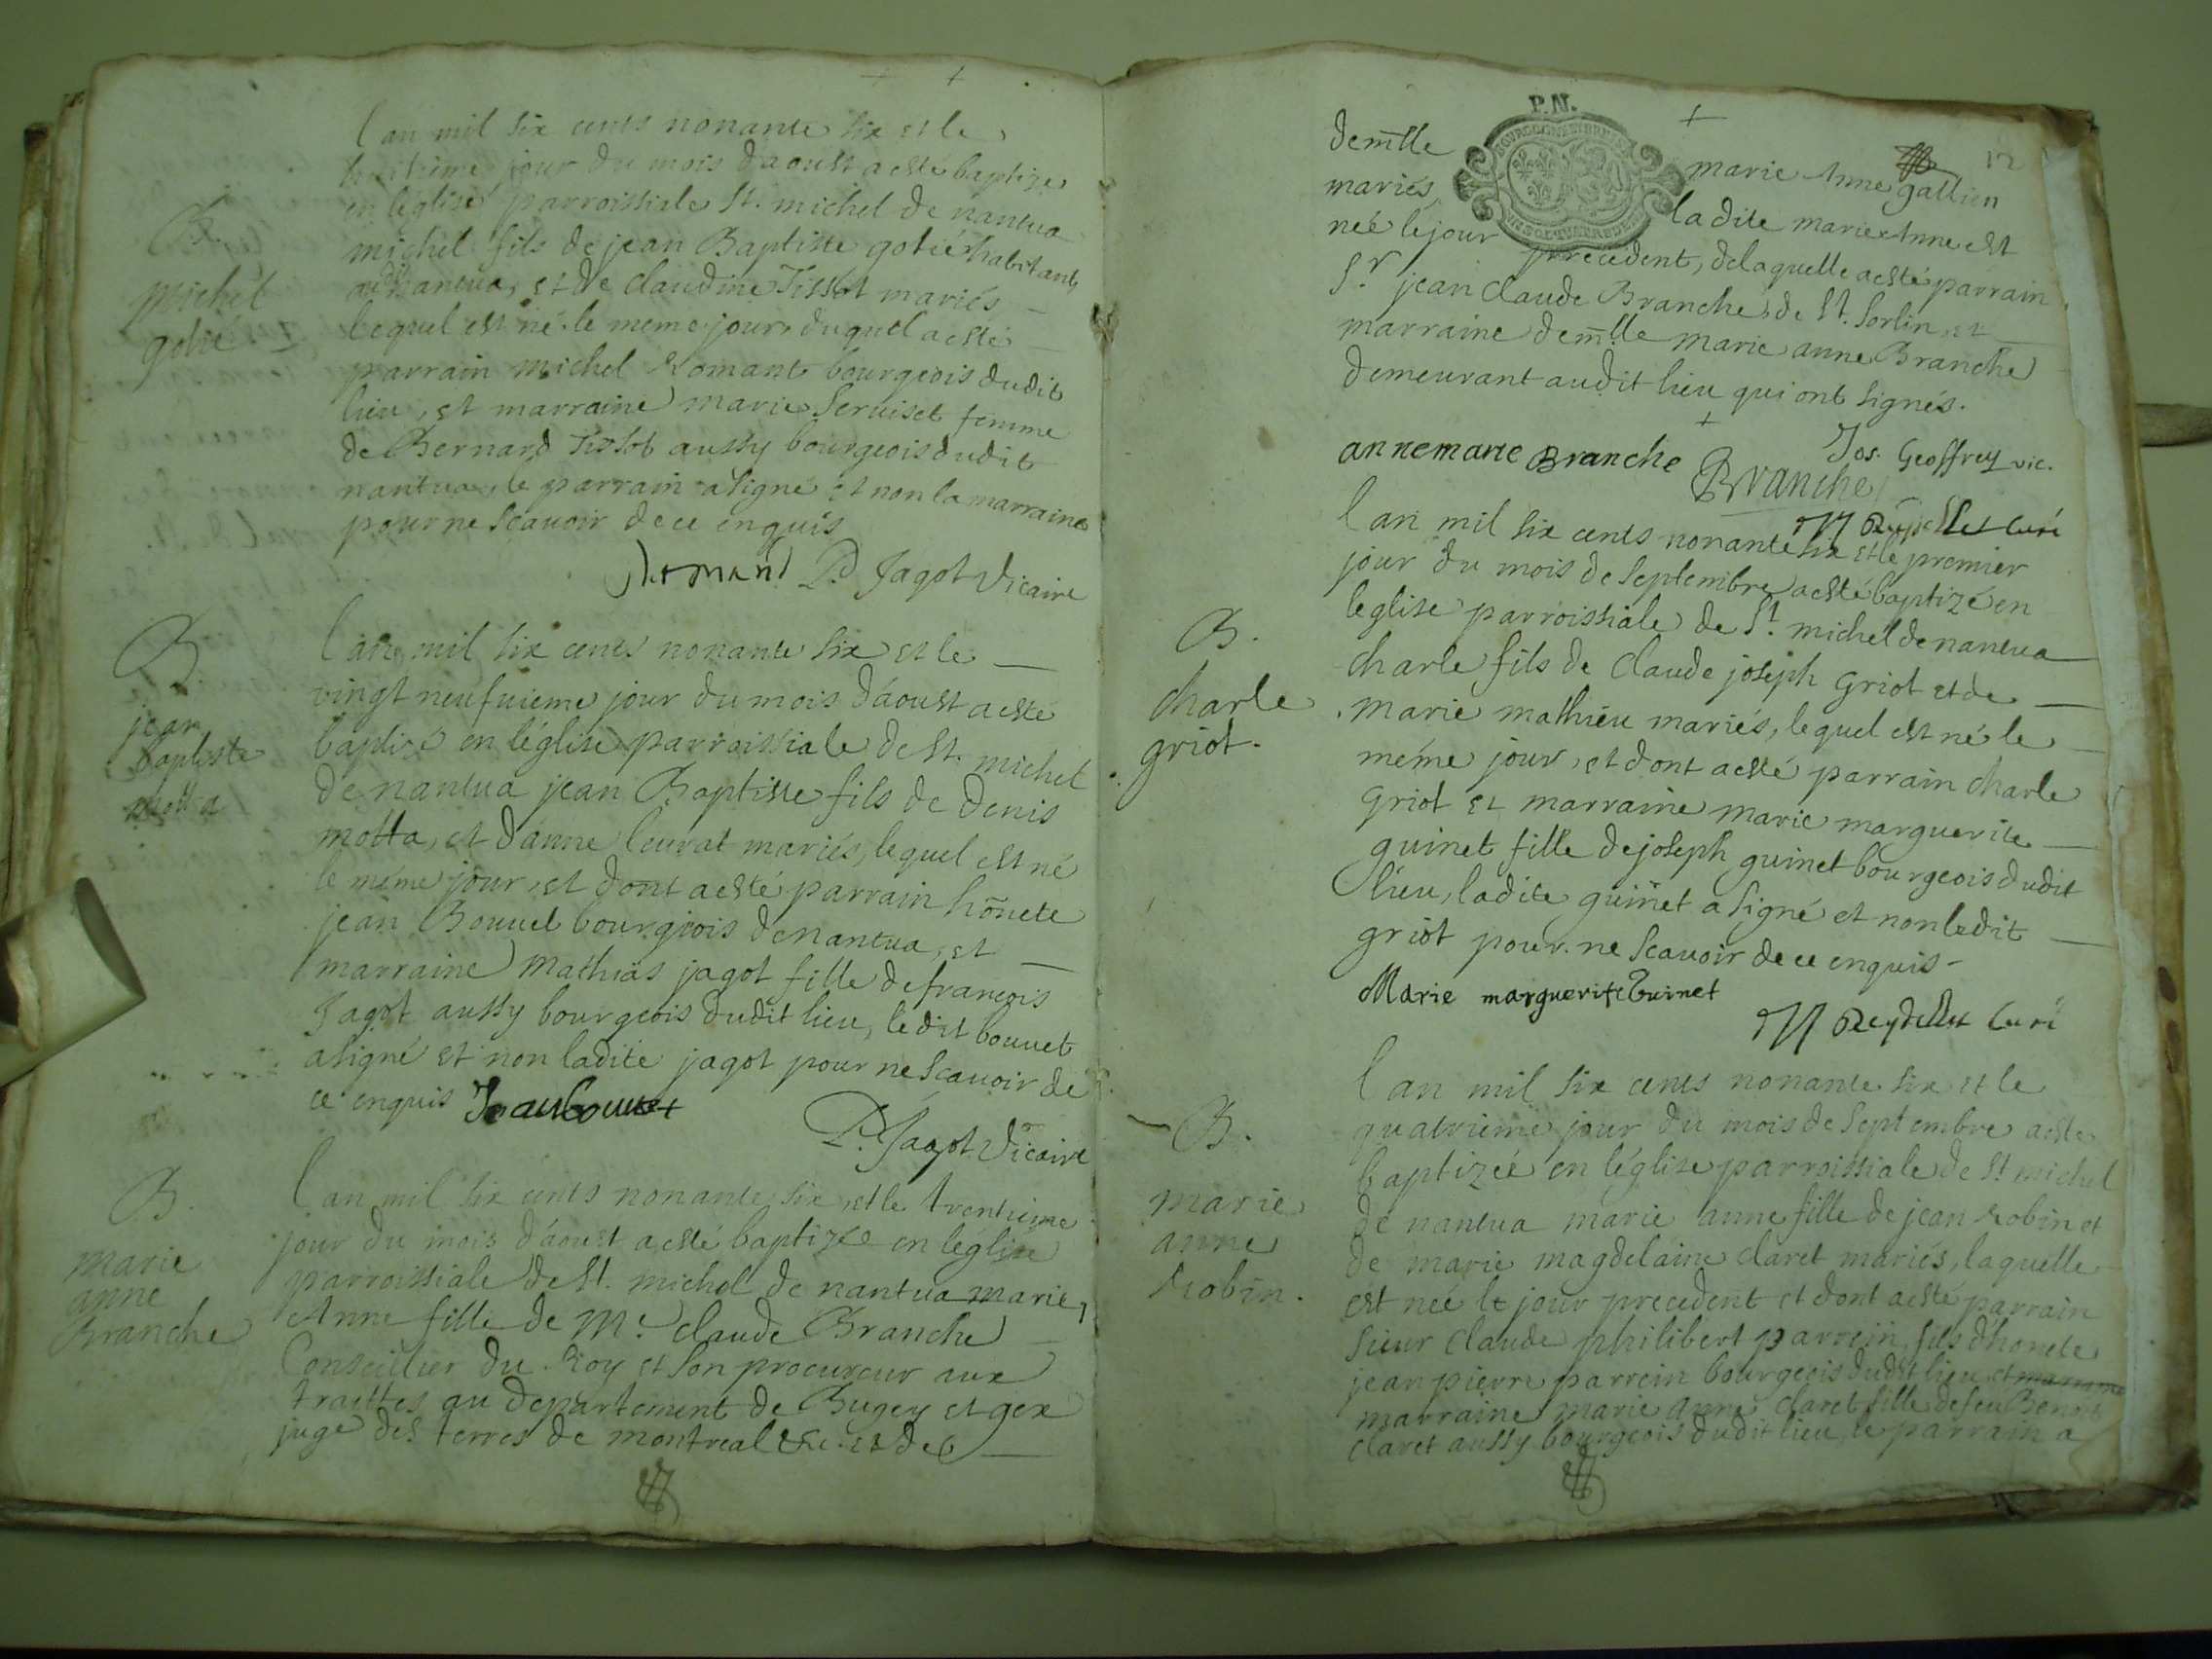 l'an mil six cents nonante six et le
huitieme jour du mois d'aoust a esté baptizé
en l'église parroissiale St. michel de nantua
michel fils de jean Baptiste gotié habitant
audit nantua, et de claudine Tissot mariés
lequel est né le meme jour duquel a esté
parrain michel Romant bourgeois dudit
lieu, et marraine marie Seruiset femme
de Bernard Tissot aussy bourgeois dudit
nantua, le parrain a signé et non la marraine
pour ne scauoir de ce enquis
Romand P. Jagot Vicaire
B.
michel
gotié
l'an mil six cents nonante six et le
vingt neufuieme jour du mois d'áoust a esté
baptizé en l'église parroissiale de St. michel
de nantua jean Baptiste fils de denis
motta, et d'anne leurat mariés, lequel est né
le méme jour, et dont a esté parrain honete
jean Bouuet bourgeois de nantua, et
marraine mathias jagot fille de francois
Jagot aussy bourgeois dudit lieu, le dit bouuet
a signé et non ladite jagot pour ne scauoir de
ce enquis Jean bouuet
P. Jagot Vicaire
B
jean
baptiste
motta
l'an mil six cents nonante six, et le trentieme
jour du mois d'áoust a esté baptizée en leglise
parroissiale de St. michel de nantua marie
Anne fille de Mr. claude Branche
Conseillier du Roy et son procureur aux
traittes au departement de Bugey et gex
juge des terres de montreal &c. et de
B.
marie
anne
Branche
P.N.
12
demlle marie Anne gallien
mariés, la dite marie Anne est
neé le jour precedent, de laquelle a esté parrain
Sr. jean claude Branche de St. Sorlin, et
marraine demlle marie anne Branche
demeurant audit lieu qui ont signés.
anne marie Branche Branche Jos. Geoffrey vic.
M Reydellet curé
l'an mil six cents nonante six et le premier
jour du mois de septembre a esté baptizé en
leglise parroissiale de St. michel de nantua
charle fils de claude joseph Griot et de
marie mathieu mariés, lequel est né le
méme jour, et dont a esté parrain charle
Griot et marraine marie marguerite
guinet fille de joseph guinet bourgeois dudit
lieu, ladite guinet a signé et non ledit
griot pour ne scauoir de ce enquis
Marie marguerite Guinet
M Reydellet curé
B.
charle
griot.
l'an mil six cents nonante six et le
quatrieme jour du mois de septembre a esté
baptizée en l'église parroissiale de St. michel
de nantua marie anne fille de jean Robin et
de marie magdelaine claret mariés, laquelle
est neé le jour precedent et dont a esté parrain
sieur claude philibert parrein fils d'honete
jean pierre parrein bourgeois dudit lieu, et marraine
marraine marie anne claret fille de feu Benoit
claret aussy bourgeois dudit lieu, le parrain a
B.
marie
anne
Robin.